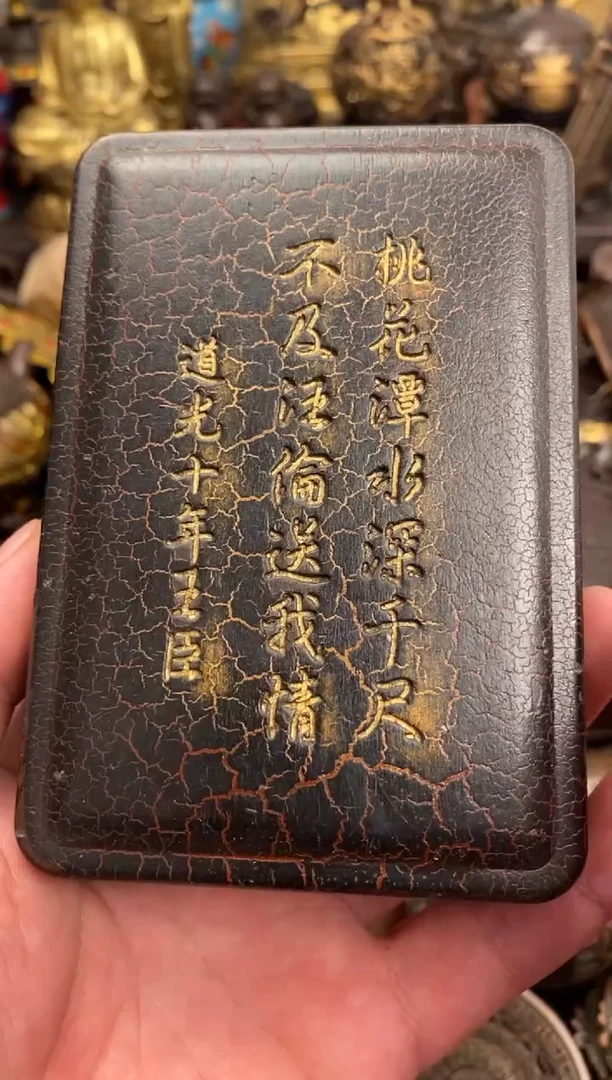 桃花潭水深千尺
不及汪倫送我情
道光十年玉臣